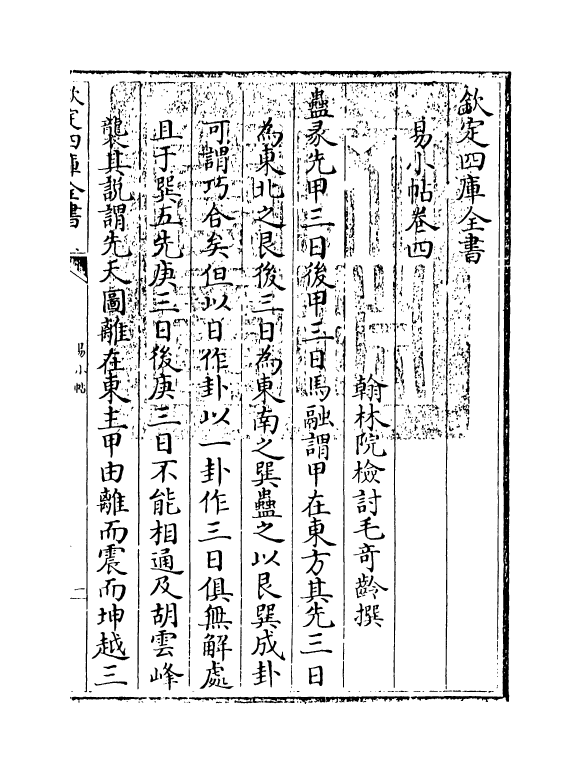 欽定四庫全書
易小帖卷四
翰林院檢討毛奇齡撰
蠱彖先甲三日後甲三日馬融謂甲在東方其先三日
為東北之艮後三日為東南之巽蠱之以艮巽成卦
可謂巧合矣但以日作卦以一卦作三日俱無解處
且于巽五先庚三日後庚三日不能相通及胡雲峰
襲其説謂先天圖離在東主甲由離而震而坤越三
欽定四庫全書
易小帖